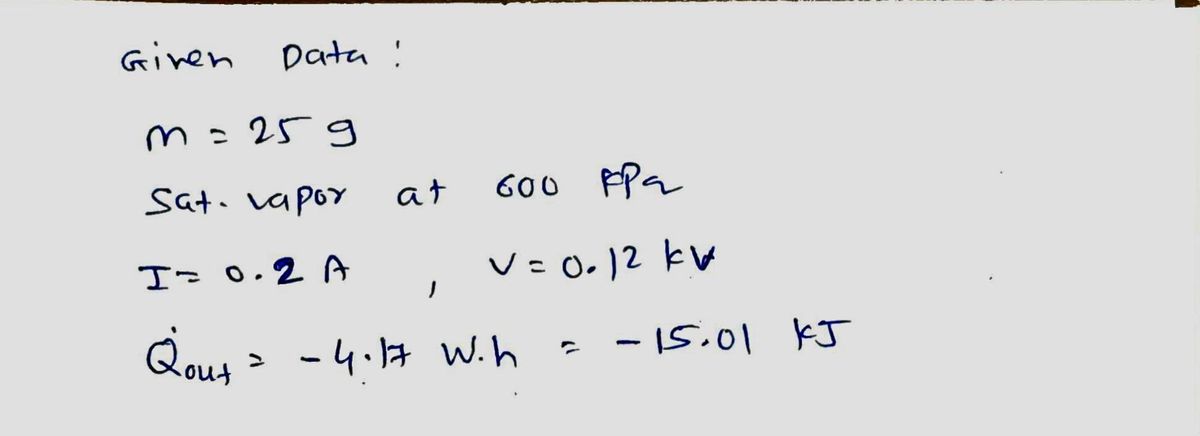 Given Data :
m = 25 g
Sat. vapor at 600 kPa
I = 0.2 A , V = 0.12 kV
Q̇out = -4.17 W.h = -15.01 kJ